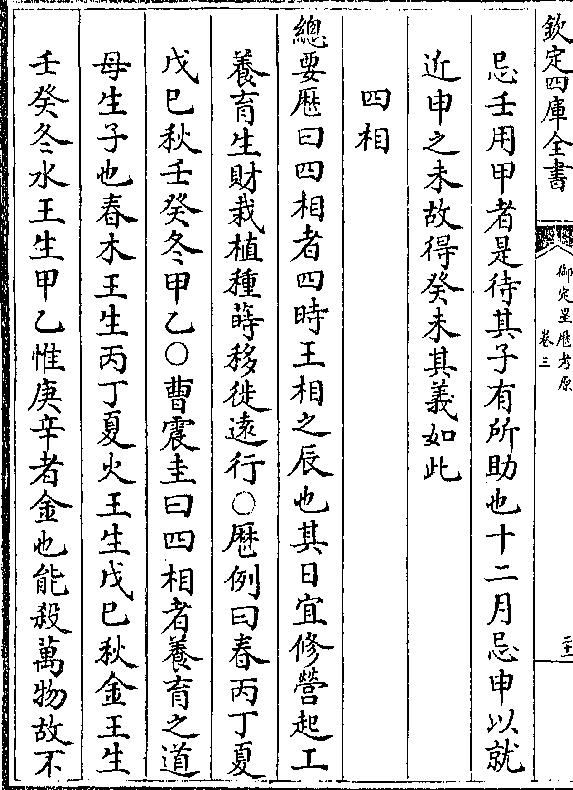 欽定四庫全書
御定星厯考原
卷三
忌壬用甲者是待其子有所助也十二月忌申以就
近申之未故得癸未其義如此
四相
總要厯曰四相者四時王相之辰也其日宜修營起工
養育生財栽植種蒔移徙遠行○厯例曰春丙丁夏
戊巳秋壬癸冬甲乙○曹震圭曰四相者養育之道
母生子也春木王生丙丁夏火王生戊巳秋金王生
壬癸冬水王生甲乙惟庚辛者金也能殺萬物故不